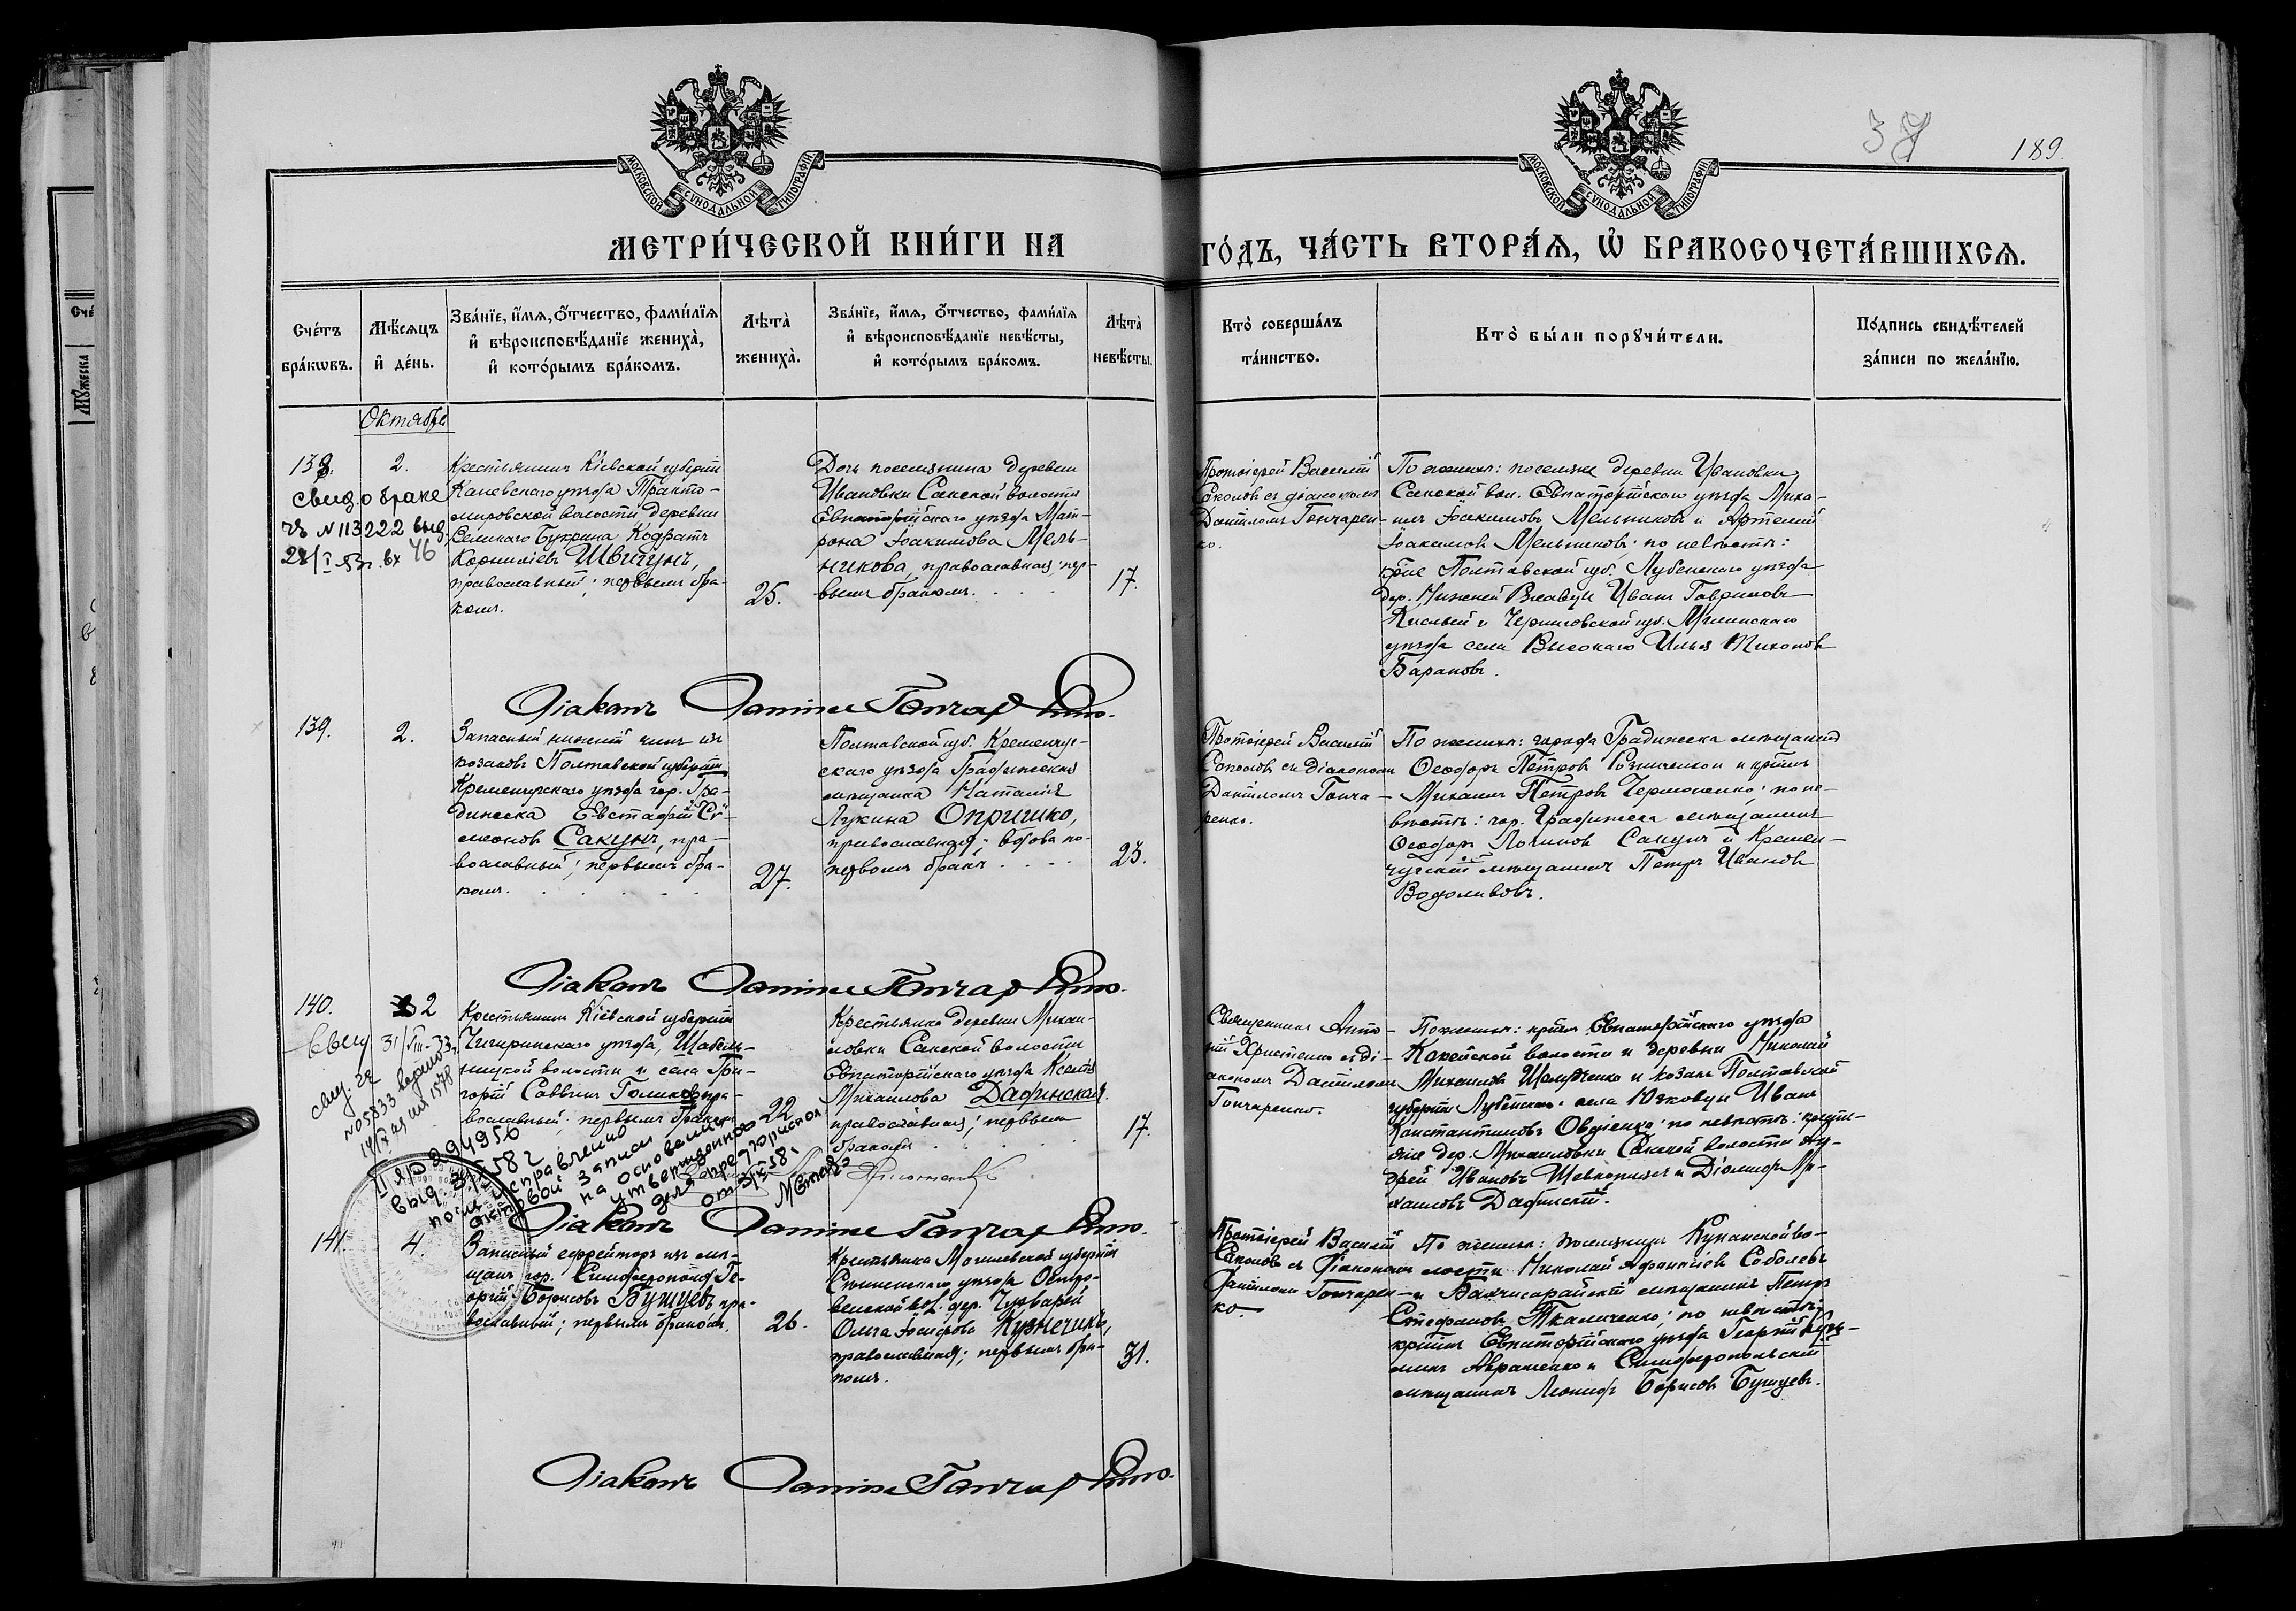 38
189.
МОСКОВСКОЙ СѴНОДАЛЬНОЙ ТИПОГРАФІИ
МОСКОВСКОЙ СѴНОДАЛЬНОЙ ТИПОГРАФІИ
МЕТРИ́ЧЕСКОЙ КНИ́ГИ НА ГО́ДЪ, ЧА́СТЬ ВТОРА́Ѧ, Ѡ҆ БРАКОСОЧЕТА́ВШИХСѦ.
Сче́тъ
бра́кѡвъ.
Мѣ́сѧцъ
и҆ де́нь.
Зва́нїе, и҆́мѧ, ѻ҆́тчество, фами́лїѧ
и҆ вѣроисповѣ́данїе жениха̀,
и҆ кото́рымъ бра́комъ.
Лѣ́та
жениха̀.
Зва́нїе, и҆́мѧ, ѻ҆́тчество, фами́лїѧ
и҆ вѣроисповѣ́данїе невѣ́сты,
и҆ кото́рымъ бра́комъ.
Лѣ́та
невѣ́сты.
Кто̀ соверша́лъ
та́инство.
Кто̀ бы́ли порꙋчи́тели.
По́дпись свидѣ́телей
за́писи по жела́нїю.
Октябрь
138.
свид. о браке
ГЪ N 113222 выд.
46
2.
Крестьянинъ Кіевской губерніи
Каневскаго уѣзда Тракто-
мировской волости деревни
Великаго Букрина Кодратъ
Корниліевъ Швигунъ,
православный; первымъ бра-
комъ.
25.
Дочь поселянина деревни
Ивановки Сакской волости
Евпаторійскаго уѣзда Мат-
рона Іоакимова Мель-
никова, православная; пер-
вымъ бракомъ.
17.
Протоіерей Василій
Соколовъ съ діакономъ
Даніиломъ Гончарен-
ко.
По женихѣ: поселяне деревни Ивановки,
Сакской вол. Евпаторійскаго уѣзда Миха-
илъ Іоакимовъ Мельниковъ и Артемій
Іоакимовъ Мельниковъ; по невѣстѣ:
кр-не Полтавской губ. Лубенскаго уѣзда
дер. Нижней Иванъ Гавриловъ
Кислый и Черниговской губ. Мглинскаго
уѣзда села Высокаго Илья Тихоновъ
Барановъ.
Діаконъ Даніилъ Гончаренко.
139.
2.
Запасный нижній чинъ изъ
козаковъ Полтавской губерніи
Кременчугскаго уѣзда гор. Гра-
дижска Евстафій Сѵ-
меоновъ Сакунъ, пра-
вославный; первымъ бра-
комъ.
27.
Полтавской губ. Кременчуг-
скаго уѣзда Градижская
мѣщанка Наталія
Лукина Опришко,
православная; вдова по
первомъ бракѣ
23.
Протоіерей Василій
Соколовъ съ діакономъ
Даніиломъ Гонча-
ренко.
По женихѣ: города Градижска мѣщанинъ
Ѳеодоръ Петровъ и кр-нинъ
Михаилъ Петровъ Чермошенко; по не-
вѣстѣ: гор. Градижска мѣщанинъ
Ѳеодоръ Логиновъ Сакунъ и Кремен-
чугскій мѣщанинъ Петръ Ивановъ
Водоливовъ.
Діаконъ Даніилъ Гончаренко.
140.
2
31/VIII-33г.
свид. ГЪ
N 05833
Крестьянинъ Кіевской губерніи
Чигиринскаго уѣзда,
ницкой волости и села Гри-
горій Саввинъ Голиковъ, пра-
вославный; первымъ бракомъ
22
Крестьянка деревни Михай-
ловки Сакской волости
Евпаторійскаго уѣзда Ксенія
Михаилова Дафинская,
православная; первымъ
бракомъ
17.
Священникъ Анто-
ній Христенко съ ді-
акономъ Даніиломъ
Гончаренко.
По женихѣ: кр-нинъ Евпаторійскаго уѣзда
волости и деревни Николай
Михаиловъ и козакъ Полтавской
губерніи Лубенскаго села Юсковцы Иванъ
Константиновъ Овдіенко; по невѣстѣ: кресть-
яне дер. Михайловки Сакской волости Ан-
дрей Ивановъ Шевкоплясъ и Діомидъ Ми-
хаиловъ Дафинскій.
II ЯР 294956
выд. 58 г
после исправления
актовой записи
на основании
утвержденного
дела
от 3/IX 58г
Діаконъ Даніилъ Гончаренко.
141.
4.
Запасный ефрейторъ изъ мѣ-
щанъ гор. Симферополя Ге-
оргій Борисовъ Бушуевъ, пра-
вославный; первымъ бракомъ.
26.
Крестьянка Могилевской губерніи
Сѣнненскаго уѣзда Остро-
венской вол. дер.
Ольга Іосифова Кузнечикъ,
православная; первымъ бра-
комъ.
31.
Протоіерей Василій
Соколовъ съ діакономъ
Даніиломъ Гончарен-
ко
По женихѣ: поселянинъ Курманской во-
лости Николай Соболевъ
и Бахчисарайскій мѣщанинъ Петръ
Стефановъ Ткаличенко; по невѣстѣ:
кр-нинъ Евпаторійскаго уѣзда Георгій Кузь-
минъ Авраменко и Симферопольскій
мѣщанинъ Леонидъ Борисовъ Бушуевъ.
Діаконъ Даніилъ Гончаренко.